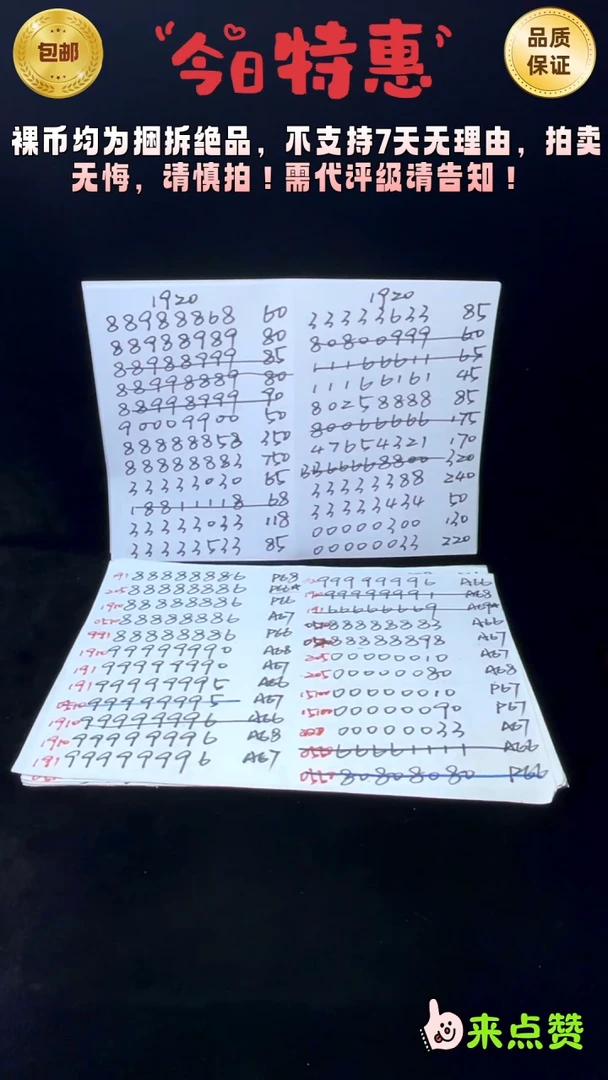 包邮
今日特惠
品质
保证
裸币均为捆拆绝品，不支持7天无理由，拍卖
无悔，请慎拍！需代评级请告知！
1920
88988868 60
88988989 80
88988999 85
88998889 80
88998999 90
90009900 50
88888858 350
88888883 750
33333030 65
18811118 68
33333033 118
33333533 85
1920
33333633 85
80800999 60
11166611 65
11166161 45
80258888 85
80066666 175
47654321 170
66668800 320
33333388 240
33333434 50
00000300 130
00000033 220
191 88888886 P68
205 88888886 P66★
1910 88888886 P66
0510 88888886 A67
991 88888886 P66
1910 99999990 A68
191 99999990 A67
191 99999995 A66
0510 99999995 A67
1910 99999996 A66
1910 99999996 A68
191 99999996 A67
99999996 A66
99999991 A68
191 66666669 A69★
88888883 A66
88888898 A67
205 00000010 A67
205 00000080 A68
1510 00000010 P67
1510 00000090 P67
00000033 A67
66661111 A66
80808080 P66
来点赞